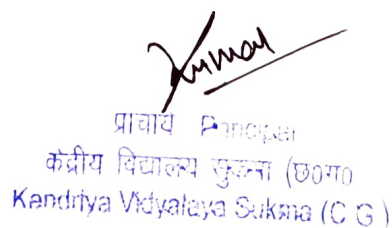 Kumar
प्राचार्य Principal
केंद्रीय विद्यालय सुकमा (छ०ग०
Kendriya Vidyalaya Sukma (C G )